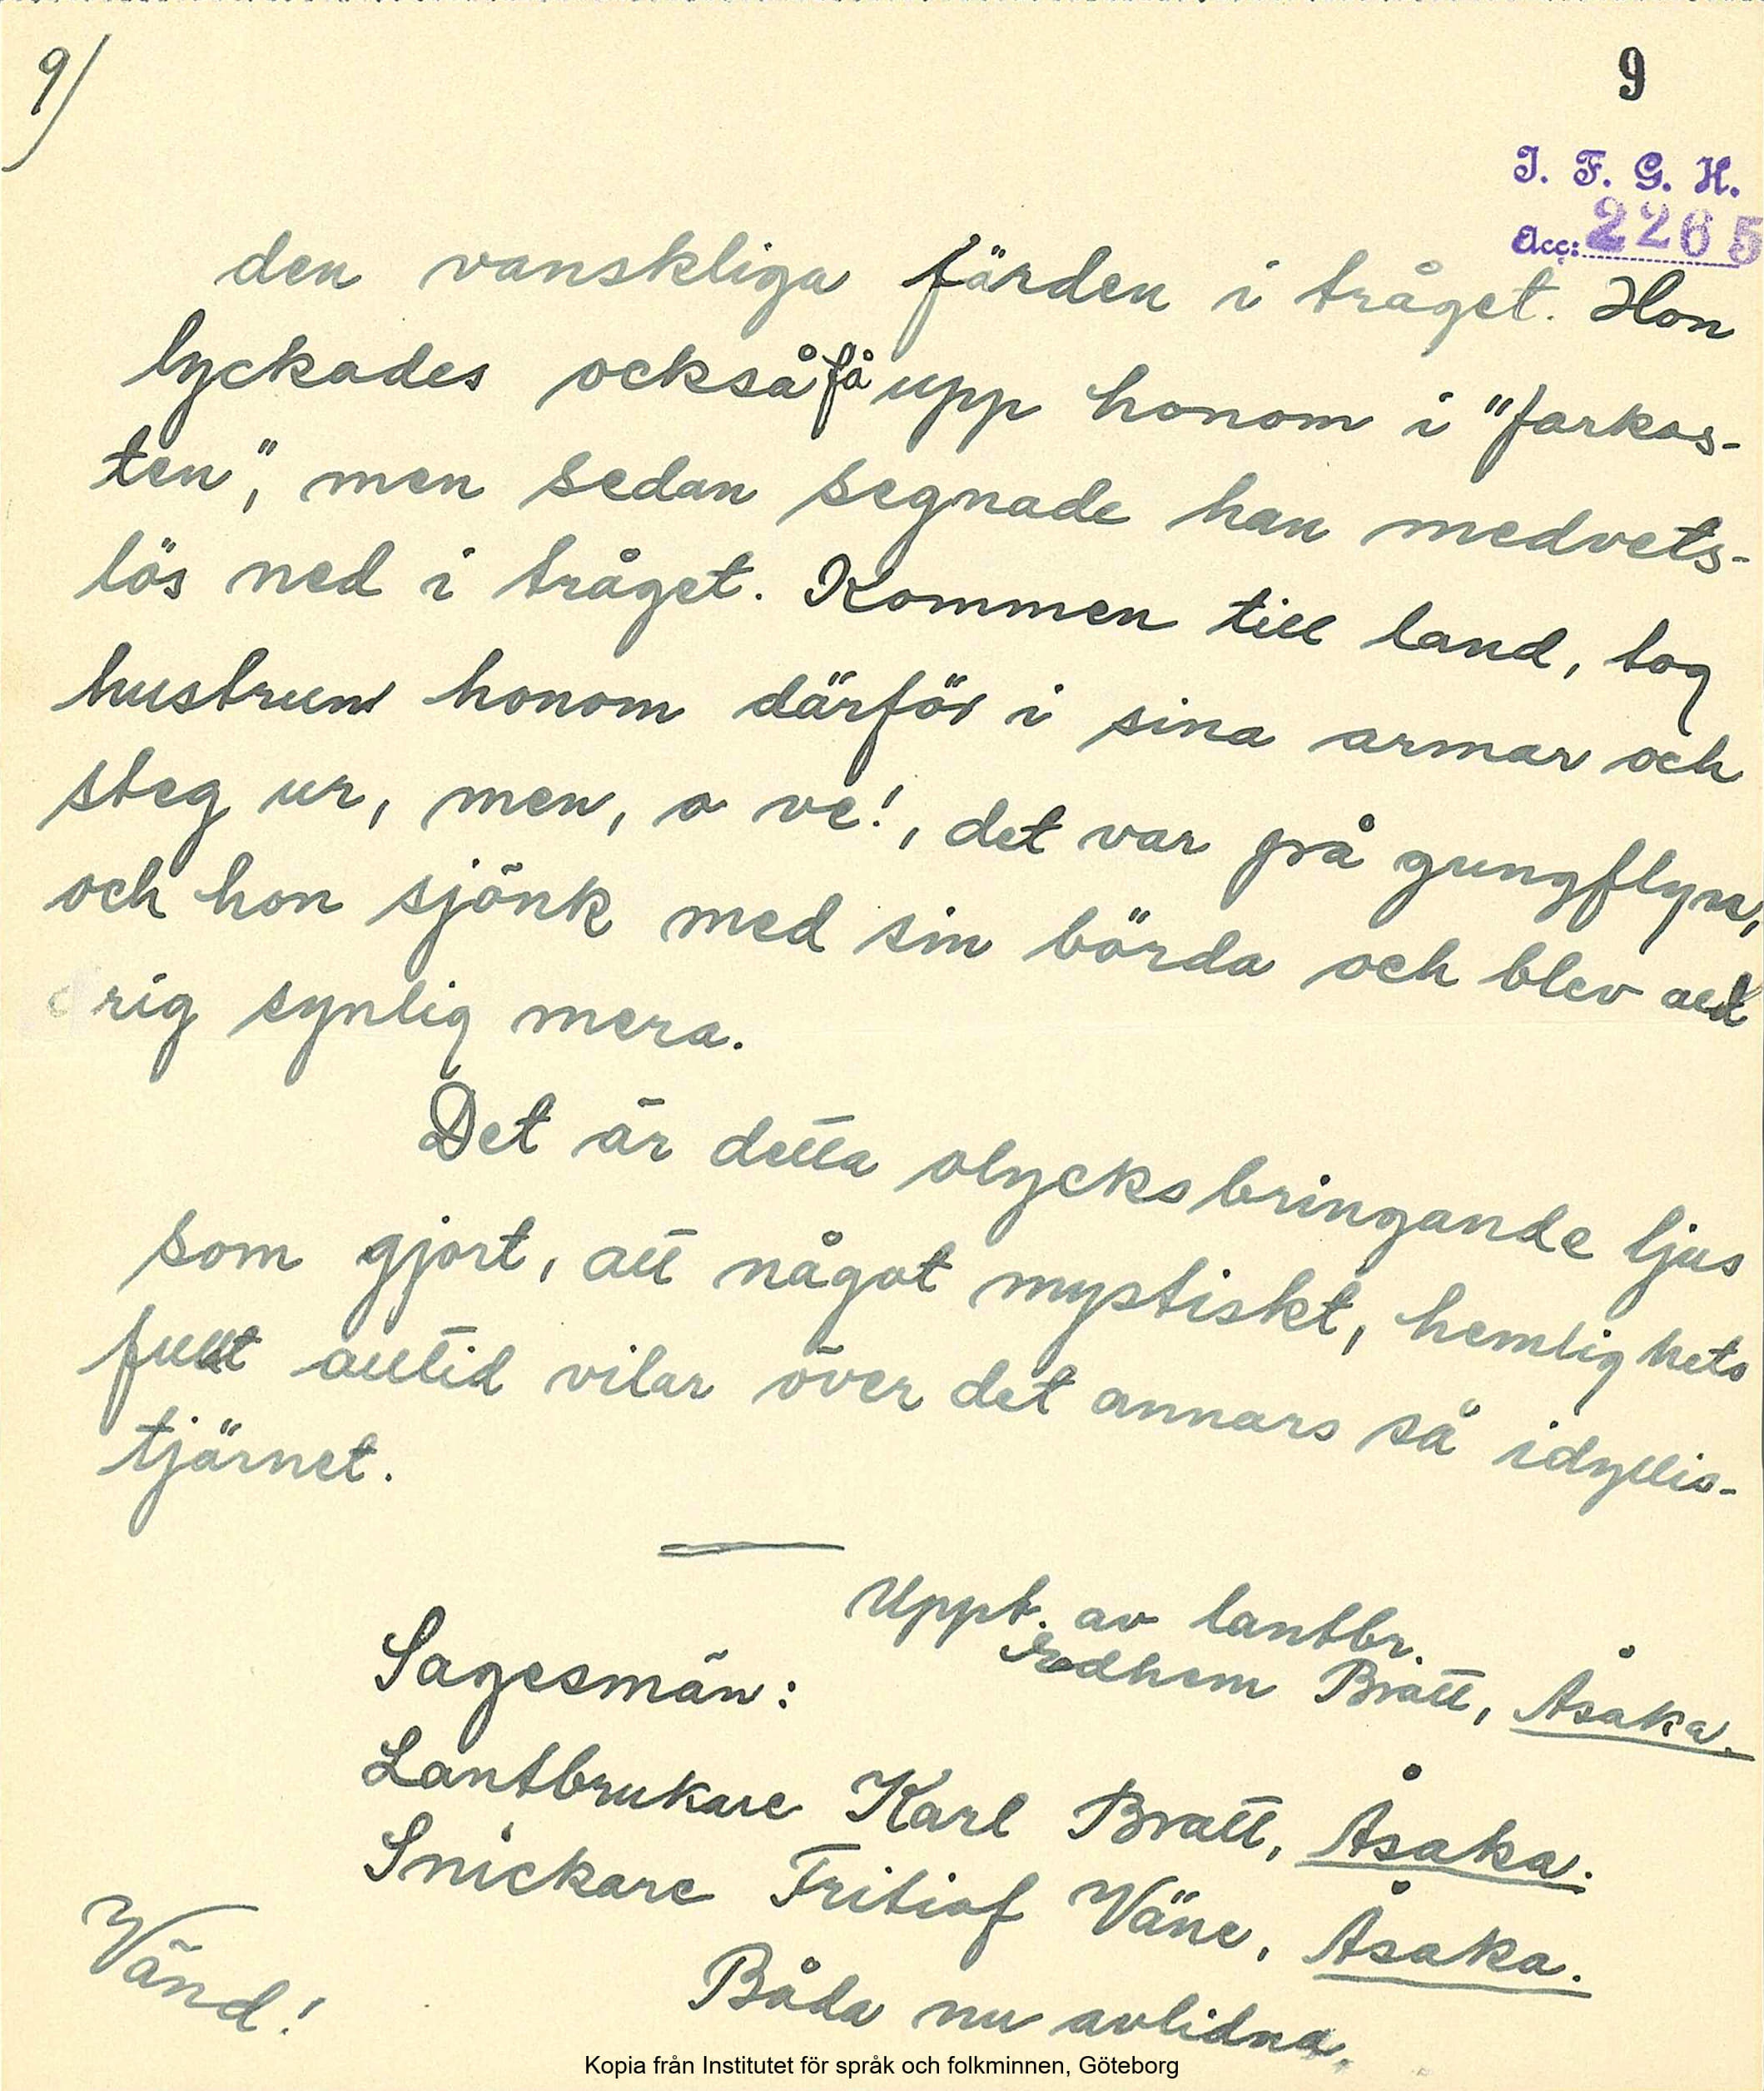 9)
9
I. F. G. H.
Acc: 2265
den vanskliga färden i tråget. Hon
lyckades också få upp honom i "farkos-
ten", men sedan segnade han medvets-
lös ned i tråget. Kommen till land, tog
hustrun honom därför i sina armar och
steg ur, men, o ve!, det var på gungflyn,
och hon sjönk med sin börda och blev ald
rig synlig mera.
Det är detta olycksbringande ljus
som gjort, att något mystiskt, hemlighets
fullt alltid vilar över det annars så idyllis-
tjärnet.
Uppt. av lantbr.
Bratt, Åsaka.
Sagesmän:
Lantbrukare Karl Bratt, Åsaka.
Snickare Fritiof Väne, Åsaka.
Båda nu avlidna.
Vänd!
Kopia från Institutet för språk och folkminnen, Göteborg